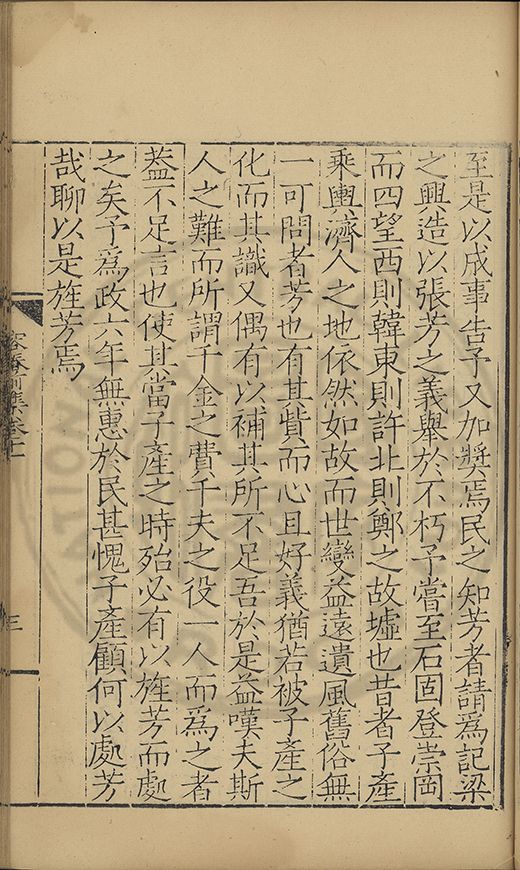 至是以成事告予又加奬焉民之知芳者請爲記梁
之興造以張芳之義舉於不朽予嘗至石固登崇岡
而四望西則韓東則許北則鄭之故墟也昔者子產
乘輿濟人之地依然如故而世變益遠遺風舊俗無
一可問者芳也有其貲而心且好義猶若被子產之
化而其識又偶有以補其所不足吾於是益嘆夫斯
人之難而所謂千金之費千夫之役一人而爲之者
葢不足言也使其當子產之時殆必有以旌芳而處
之矣予爲政六年無惠於民甚愧子產顧何以處芳
哉聊以是旌芳焉
容春前集卷十一
三